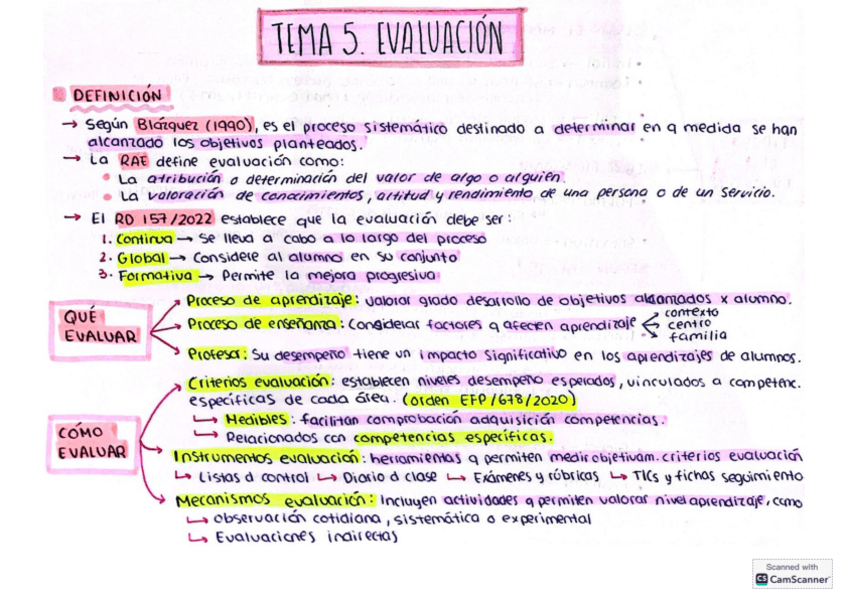 TEMA 5. EVALUACIÓN
DEFINICIÓN
→ Según Blázquez (1990), es el proceso sistemático destinado a determinar en q medida se han
alcanzado los objetivos planteados.
→ La RAE define evaluación como:
• La atribución o determinación del valor de algo o alguien.
• La valoración de conocimientos, actitud y rendimiento de una persona o de un servicio.
→ El RD 157/2022 establece que la evaluación debe ser:
1. Continua → Se lleva a cabo a lo largo del proceso
2. Global → Considere al alumno en su conjunto
3. Formativa → Permite la mejora progresiva
QUÉ
EVALUAR
Proceso de aprendizaje: valorar grado desarrollo de objetivos alcanzados x alumno.
Proceso de enseñanza: Considerar factores q afecten aprendizaje
contexto
centro
familia
Profesor: Su desempeño tiene un impacto significativo en los aprendizajes de alumnos.
CÓMO
EVALUAR
Criterios evaluación: establecen niveles desempeño esperados, vinculados a competenc.
específicas de cada área. (orden EFP/678/2020)
↳ Medibles: facilitan comprobación adquisición competencias.
↳ Relacionados con competencias específicas.
Instrumentos evaluación: herramientas q permiten medir objetivam. criterios evaluación
↳ Listas d control ↳ Diario d clase ↳ Exámenes y rúbricas ↳ TICs y fichas seguimiento
Mecanismos evaluación: Incluyen actividades q permiten valorar nivel aprendizaje, como
↳ observación cotidiana, sistemática o experimental
↳ Evaluaciones indirectas
Scanned with
CS CamScanner